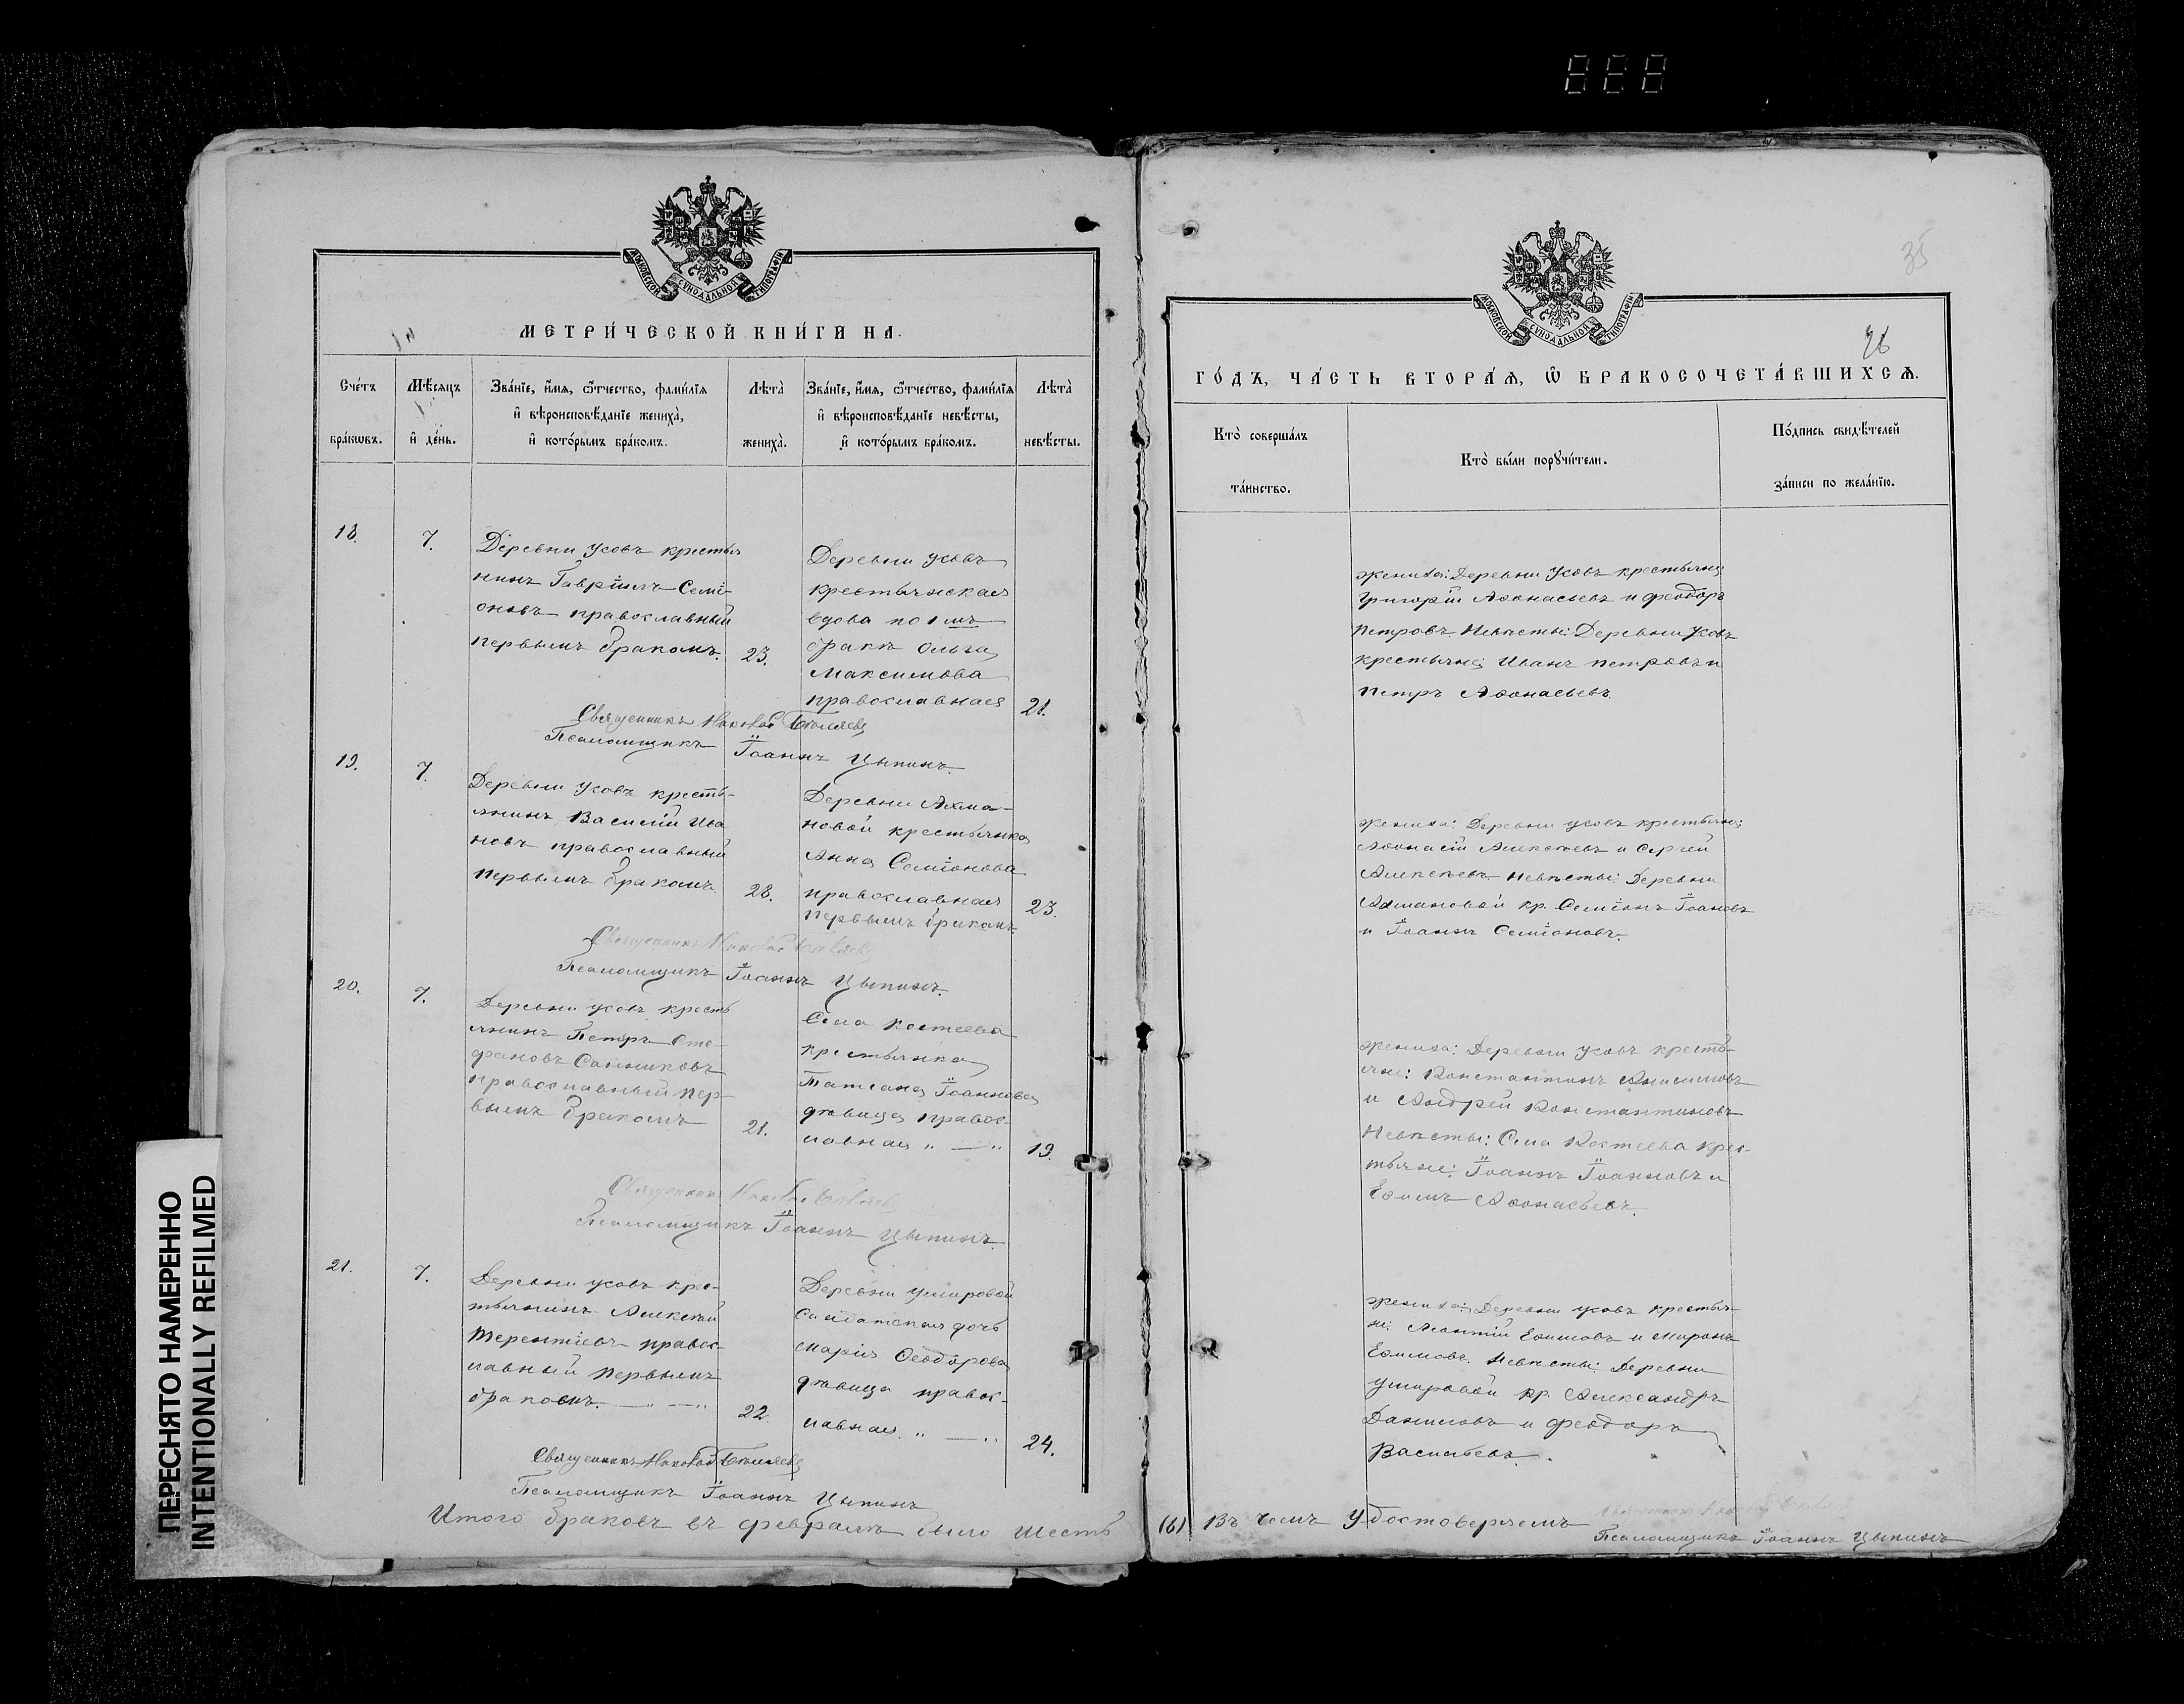 МОСКОВСКОЙ СѴНОДАЛЬНОЙ ТИПОГРАФІИ
МЕТРИ́ЧЕСКОЙ КНИ́ГИ НА
Сче́тъ бра́кѡвъ.
Мѣ́сяцъ и҆ де́нь.
Зва́нїе, и҆́мя, ѻ҆́тчество, фами́лїя
и҆ вѣроисповѣ́данїе жениха̀,
и҆ кото́рымъ бра́комъ.
Лѣта̀ жениха̀.
Зва́нїе, и҆́мя, ѻ҆́тчество, фами́лїя
и҆ вѣроисповѣ́данїе невѣ́сты,
и҆ кото́рымъ бра́комъ.
Лѣта̀ невѣ́сты.
18.
7.
Деревни Усовъ крестья
нинъ Гавріилъ Семі-
оновъ православный
первымъ бракомъ.
23.
Деревни Усовъ
крестьянская
вдова по 1 мъ
бракѣ Ольга
Максимова
православная
21.
Священникъ Николай Бѣляевъ
Псаломщикъ Іоаннъ Цыпинъ.
19.
7.
Деревни Усовъ кресть-
янинъ Василій Ива
новъ православный
первымъ бракомъ.
28.
Деревни Ахма-
новой крестьянка
Анна Семіонова
православная
первымъ бракомъ.
23.
Священникъ Николай Бѣляевъ
Псаломщикъ Іоаннъ Цыпинъ.
20.
7.
Деревни Усовъ кресть
янинъ Петръ Сте-
фановъ Сальниковъ
православный пер-
вымъ бракомъ
21.
Села Костеева
крестьянка
Татіана Іоаннова
дѣвица правос-
лавная „ — „
19.
Священникъ Николай Бѣляевъ
Псаломщикъ Іоаннъ Цыпинъ.
21.
7.
Деревни Усовъ крес-
тьянинъ Алексѣй
Терентіевъ правос-
лавный первымъ
бракомъ. — „ — „
22.
Деревни Умировой
Солдатская дочь
Марія Ѳеодорова
дѣвица правос-
лавная. „ — „
24.
Священникъ Николай Бѣляевъ
Псаломщикъ Іоаннъ Цыпинъ
Итого браковъ въ февралѣ было шесть
35
МОСКОВСКОЙ СѴНОДАЛЬНОЙ ТИПОГРАФІИ
ГО́ДЪ, ЧА́СТЬ ВТОРА́Я, Ѡ҆ БРАКОСОЧЕТА́ВШИХСЯ.
Кто̀ соверша́лъ
та́инство.
Кто̀ бы́ли порꙋчи́тели.
По́дпись свидѣ́телей
за́писи по жела́нїю.
жениха: Деревни Усовъ крестьяне
Григорій Аѳонасьевъ и Феодоръ
Петровъ Невѣсты: Деревни Усовъ
крестьяне; Иванъ Петровъ и
Петръ Аѳонасьевъ.
жениха: Деревни Усовъ крестьяне;
Аѳонасій Алексѣевъ и Сергей
Алексѣевъ. Невѣсты: Деревни
Ахмановой кр. Семіонъ Іоановъ
и Іоаннъ Семіоновъ.
жениха: Деревни Усовъ кресть-
яне: Константинъ Анисимовъ
и Андрей Константиновъ
Невѣсты: Села Костеева крес-
тьяне: Іоаннъ Іоанновъ и
Ефимъ Аѳонасьевъ.
жениха: Деревни Усовъ крестья-
не: Леонтій Ефимовъ и Миронъ
Ефимовъ. Невѣсты: Деревни
Умировой кр. Александръ
Даниловъ и Феодоръ
Васильевъ.
(6) Въ чемъ Удостоверяемъ
Священникъ Николай Бѣляевъ
Псаломщикъ Іоаннъ Цыпинъ
ПЕРЕСНЯТО НАМЕРЕННО
INTENTIONALLY REFILMED